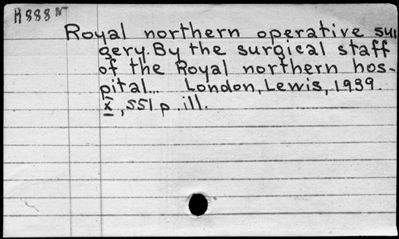 H888r
Royal northern operative sur
gery. By the surgical staff
of the Royal northern hos-
pital... London, Lewis, 1939.
x, 551 p. ill.